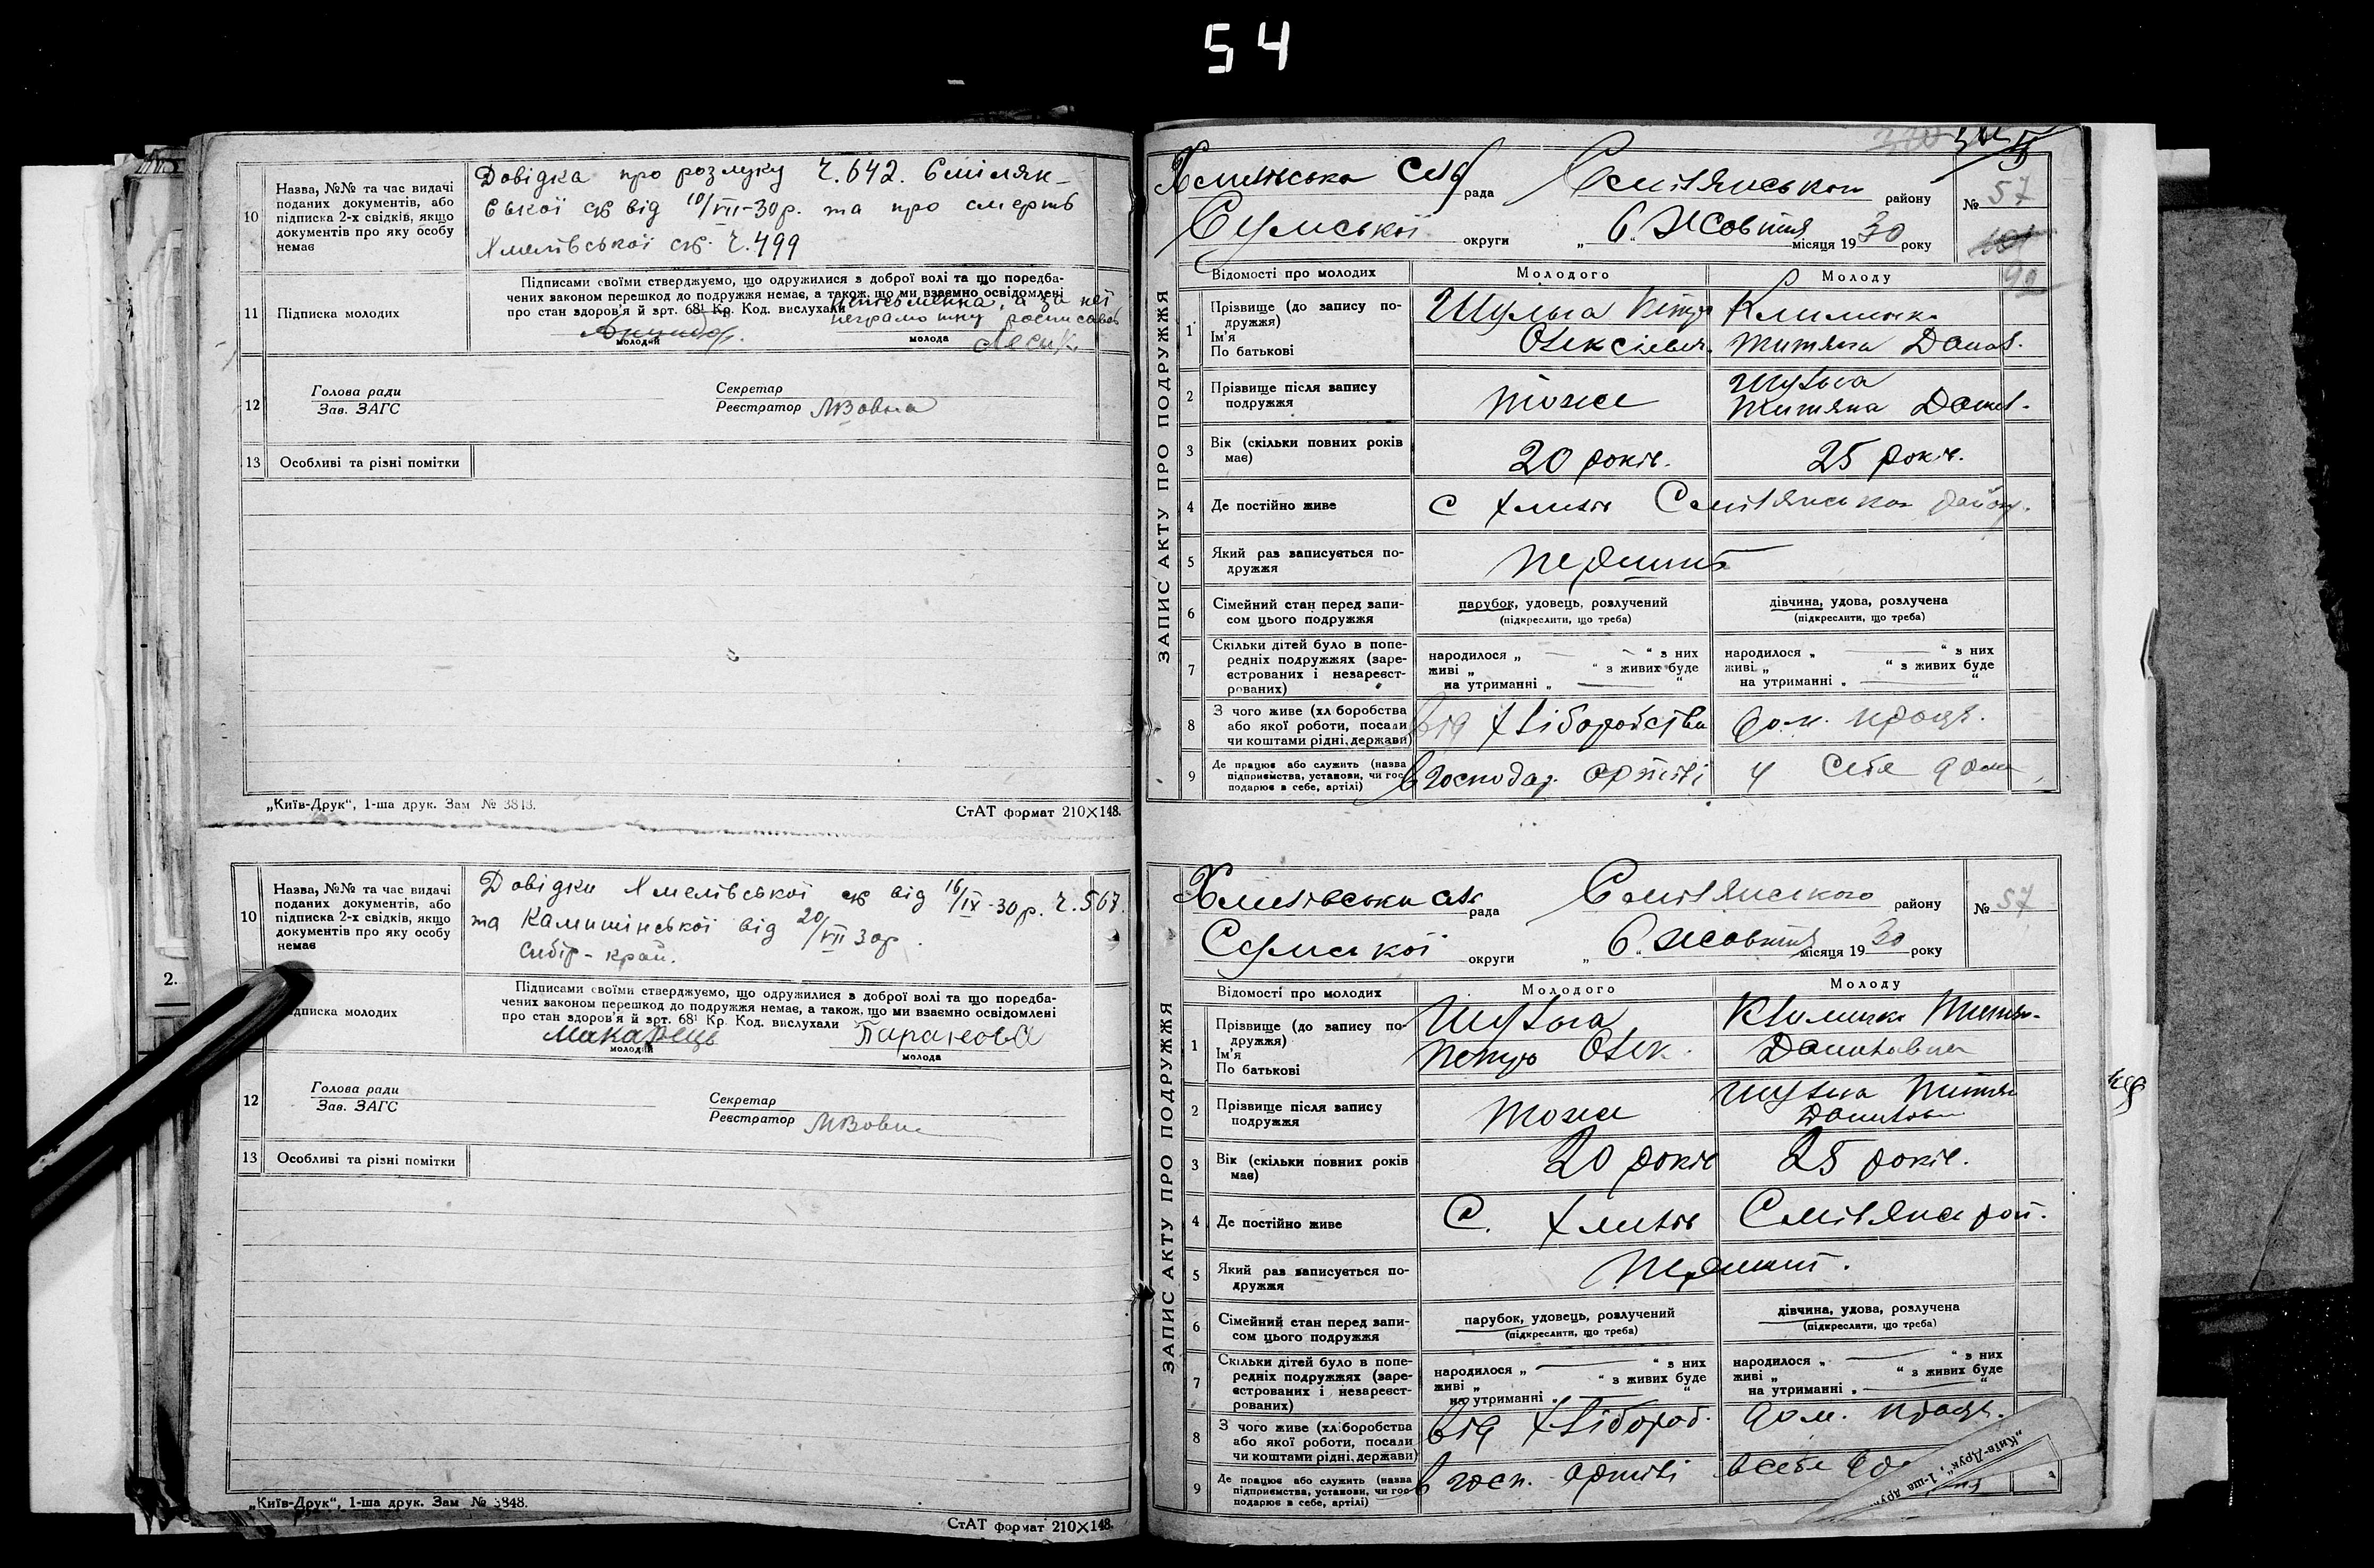 54
10
Назва, №№ та час видачі
поданих документів, або
підписка 2-х свідків, якщо
документів про яку особу
немає
Довідка про розлуку Ч.642. Смілян-
ської с/р від 10/VII-30р. та про смерть
Хмелівської с/р. Ч.499
11
Підписка молодих
Підписами своїми стверджуємо, що одружилися з доброї волі та що передба-
чених законом перешкод до подружжя немає, а також, що ми взаємно освідомлені
про стан здоров'я й арт. 68¹ Кр. Код. вислухали
неписьменна, а за неї
неграмотну росписався
молодий
молода
12
Голова ради
Зав. ЗАГС
Секретар
Реєстратор МВовна
13
Особливі та різні помітки
„Київ-Друк“, 1-ша друк. Зам № 3848.
СтАТ формат 210×148.
10
Назва, №№ та час видачі
поданих документів, або
підписка 2-х свідків, якщо
документів про яку особу
немає
Довідки Хмелівської с/р від 16/IX-30р. Ч.567.
та Камишінської від 20/VII 30р.
Сибір-край.
підписка молодих
Підписами своїми стверджуємо, що одружилися з доброї волі та що поредба-
чених законом перешкод до подружжя немає, а також, що ми взаємно освідомлені
про стан здоров'я й зрт. 68¹ Кр. Код. вислухали
Макарець
молодий
молода
12
Голова ради
Зав. ЗАГС
Секретар
Реєстратор МВовна
13
Особливі та різні помітки
„Київ-Друк“, 1-ша друк. Зам № 3848.
СтАТ формат 210×148.
2.
ЗАПИС АКТУ ПРО ПОДРУЖЖЯ
Хмелівська рада Смілянського району № 57
Сумської округи „6“ Жовтня місяця 1930 року
92
Відомості про молодих
Молодого
Молоду
1
Прізвище (до запису по-
дружжя)
Ім'я
По батькові
Шульга Петро
Олексієвич.
Климинка
Титяна Данил.
2
Прізвище після запису
подружжя
тоже
Шульга
Титяна Данил.
3
Вік (скільки повних років
має)
20 років.
25 років.
4
Де постійно живе
С Хмелів Смілянського району.
5
Який раз записується по-
дружжя
перший
6
Сімейний стан перед запи-
сом цього подружжя
парубок, удовець, розлучений
(підкреслити, що треба)
дівчина, удова, розлучена
(підкреслити, що треба)
7
Скільки дітей було в попе-
редніх подружжях (заре-
єстрованих і незареєст-
рованих)
народилося „ “ з них
живі „ “ з живих буде
на утриманні „ “
народилося „ “ з них
живі „ “ з живих буде
на утриманні „ “
8
З чого живе (хліборобства
або якої роботи, посади
чи коштами рідні, держави)
від хліборобства
дом. праця.
9
Де працює або служить (назва
підприємства, установи, чи гос-
подарює в себе, артілі)
в господар. артілі
у себе дома
ЗАПИС АКТУ ПРО ПОДРУЖЖЯ
Хмелівська рада Смілянського району № 57
Сумської округи „6“ жовтня місяця 1930 року
Відомості про молодих
Молодого
Молоду
1
Прізвище (до запису по-
дружжя)
Ім'я
По батькові
Шульга
Петро Олек.
Климинка Титян-
Данилівна
2
Прізвище після запису
подружжя
тоже
Шульга Титян
3
Вік (скільки повних років
має)
20 років
25 років.
4
Де постійно живе
С. Хмелів Смілянс рай.
5
Який раз записується по-
дружжя
перший.
6
Сімейний стан перед запи-
сом цього подружжя
парубок, удовець, розлучений
(підкреслити, що треба)
дівчина, удова, розлучена
(підкреслити, що треба)
7
Скільки дітей було в попе-
редніх подружжях (заре-
єстрованих і незареєст-
рованих)
народилося „ “ з них
живі „ “ з живих буде
на утриманні „ “
народилося „ “ з них
живі „ “ з живих буде
на утриманні „ “
8
З чого живе (хліборобства
або якої роботи, посади
чи коштами рідні, держави)
від хлібороб.
дом. праця.
9
Де працює або служить (назва
підприємства, установи, чи гос-
подарює в себе, артілі)
в госп. артілі
в себе
„Київ-Друк“, 1-ша друк.